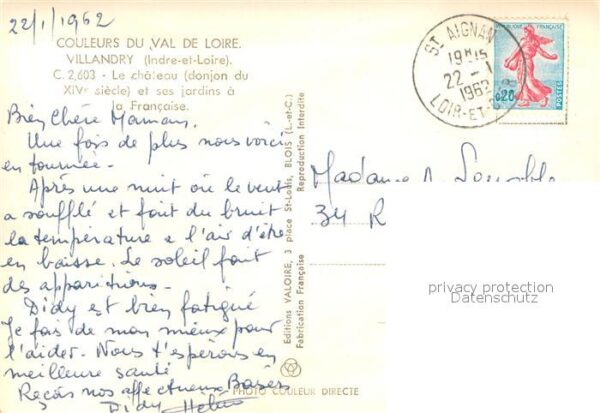 22/1/1962
COULEURS DU VAL DE LOIRE.
VILLANDRY (Indre-et-Loire).
C. 2,603 - Le château (donjon du
XIVe siècle) et ses jardins à
la Française.
Bien Chère Maman,
Une fois de plus nous voici
en tournée.
Après une nuit où le vent
a soufflé et fait du bruit
la température a l'air d'être
en baisse. Le soleil fait
des apparitions.
Didy est bien fatigué
Je fais de mon mieux pour
l'aider. Nous t'espérons en
meilleure santé
Reçois nos affectueux Baisers
Didy
PHOTO COULEUR DIRECTE
Editions VALOIRE, 3 place St-Louis, BLOIS (L.-et-C.)
Fabrication Française Reproduction Interdite
ST AIGNAN
19H15
22 - 1
1962
LOIR-ET-
RÉPUBLIQUE FRANÇAISE
0,20
POSTES
Madame
34 R
privacy protection
Datenschutz